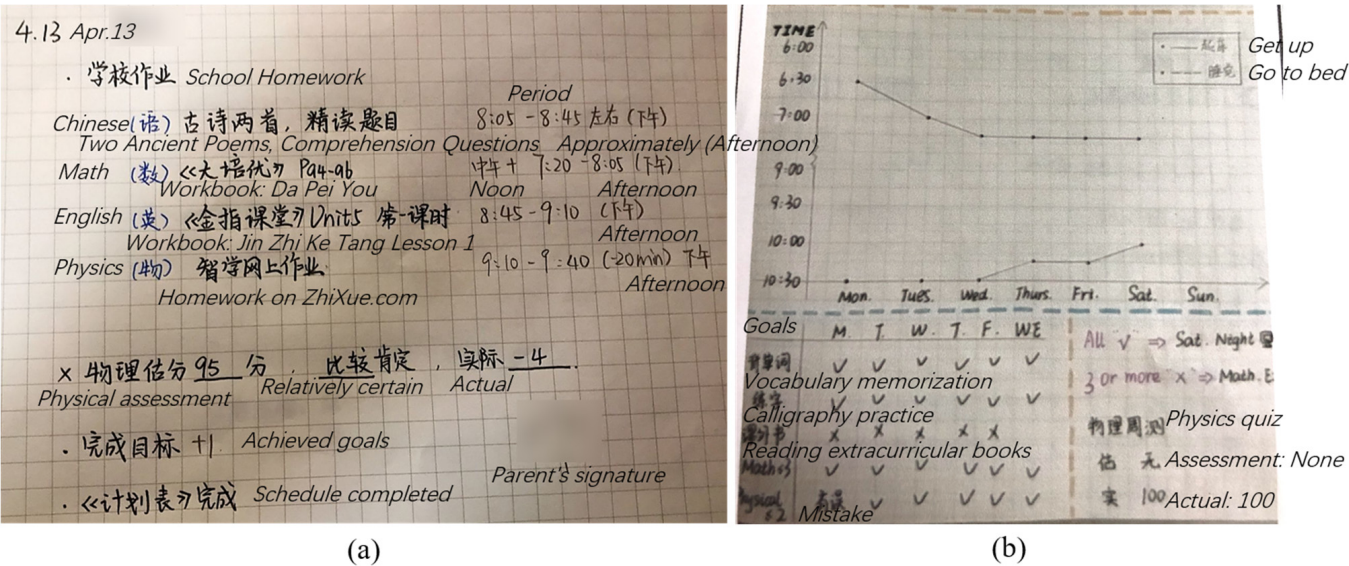 4.13 Apr.13
· 学校作业 School Homework
Period
Chinese (语) 古诗两首，精读题目 8:05-8:45 左右 (下午)
Two Ancient Poems, Comprehension Questions Approximately (Afternoon)
Math (数) 《大培优》 P94-96 中午 + 7:20-8:05 (下午).
Workbook: Da Pei You Noon Afternoon
English (英) 《金指课堂》 Unit5 第一课时 8:45-9:10 (下午)
Workbook: Jin Zhi Ke Tang Lesson 1 Afternoon
Physics (物) 智学网上作业. 9:10-9:40 (-20min) 下午
Homework on ZhiXue.com Afternoon
× 物理估分 95 分, 比较肯定, 实际 -4.
Physical assessment Relatively certain Actual
· 完成目标 +1 Achieved goals
Parent's signature
· 《计划表》完成 Schedule completed
(a)
TIME
6:00
6:30
7:00
9:00
9:30
10:00
10:30
起床 Get up
睡觉 Go to bed
Mon. Tues. Wed. Thurs. Fri. Sat. Sun.
Goals M. T. W. T. F. WE
背单词 ✓ ✓ ✓ ✓ ✓ ✓
Vocabulary memorization
练字 ✓ ✓ ✓ ✓ ✓ ✓
Calligraphy practice
课外书 × × × × ×
Reading extracurricular books
Math ✓ ✓ ✓ ✓ ✓ ✓
✓ ✓ ✓ ✓ ✓
Mistake
All "√" ⇒ Sat. Night
3 or more "×" ⇒ Math.
物理周测 Physics quiz
估 无 Assessment: None
实 100 Actual: 100
(b)